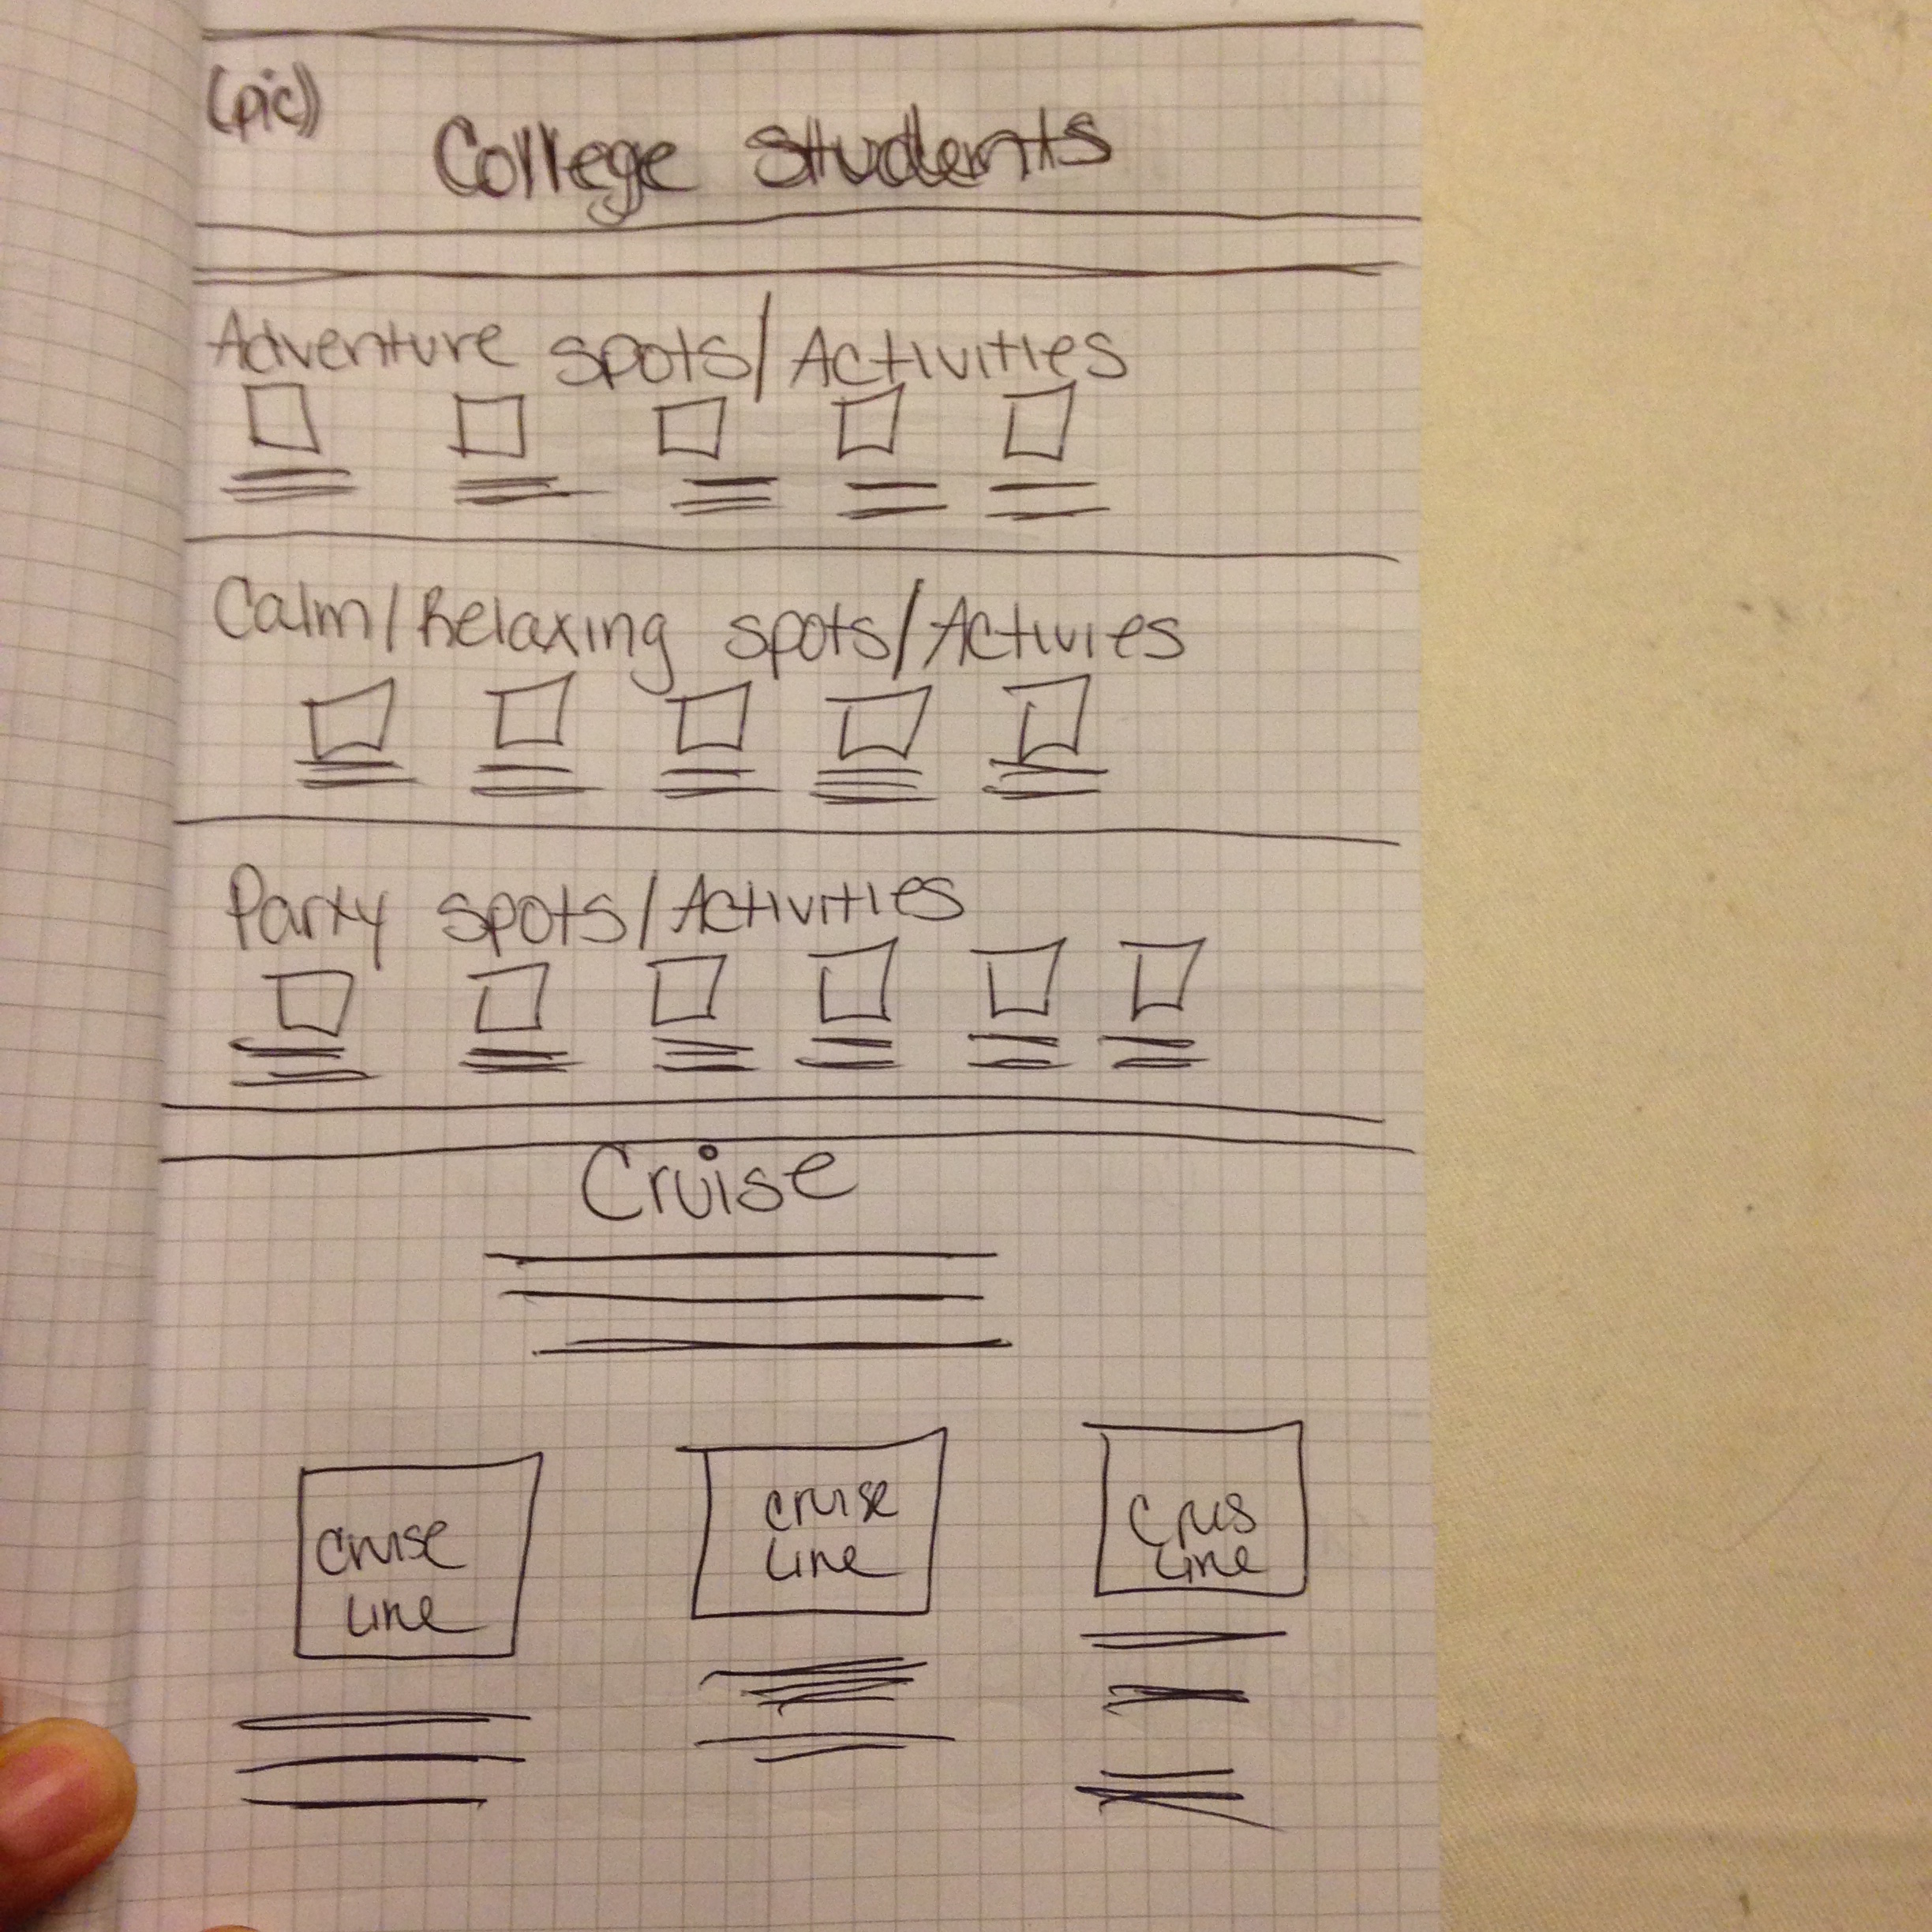 (pic)
College Students
Adventure spots/Activities
Calm/Relaxing spots/Activies
Party spots/Activities
Cruise
cruise
line
cruise
line
Cruis
line